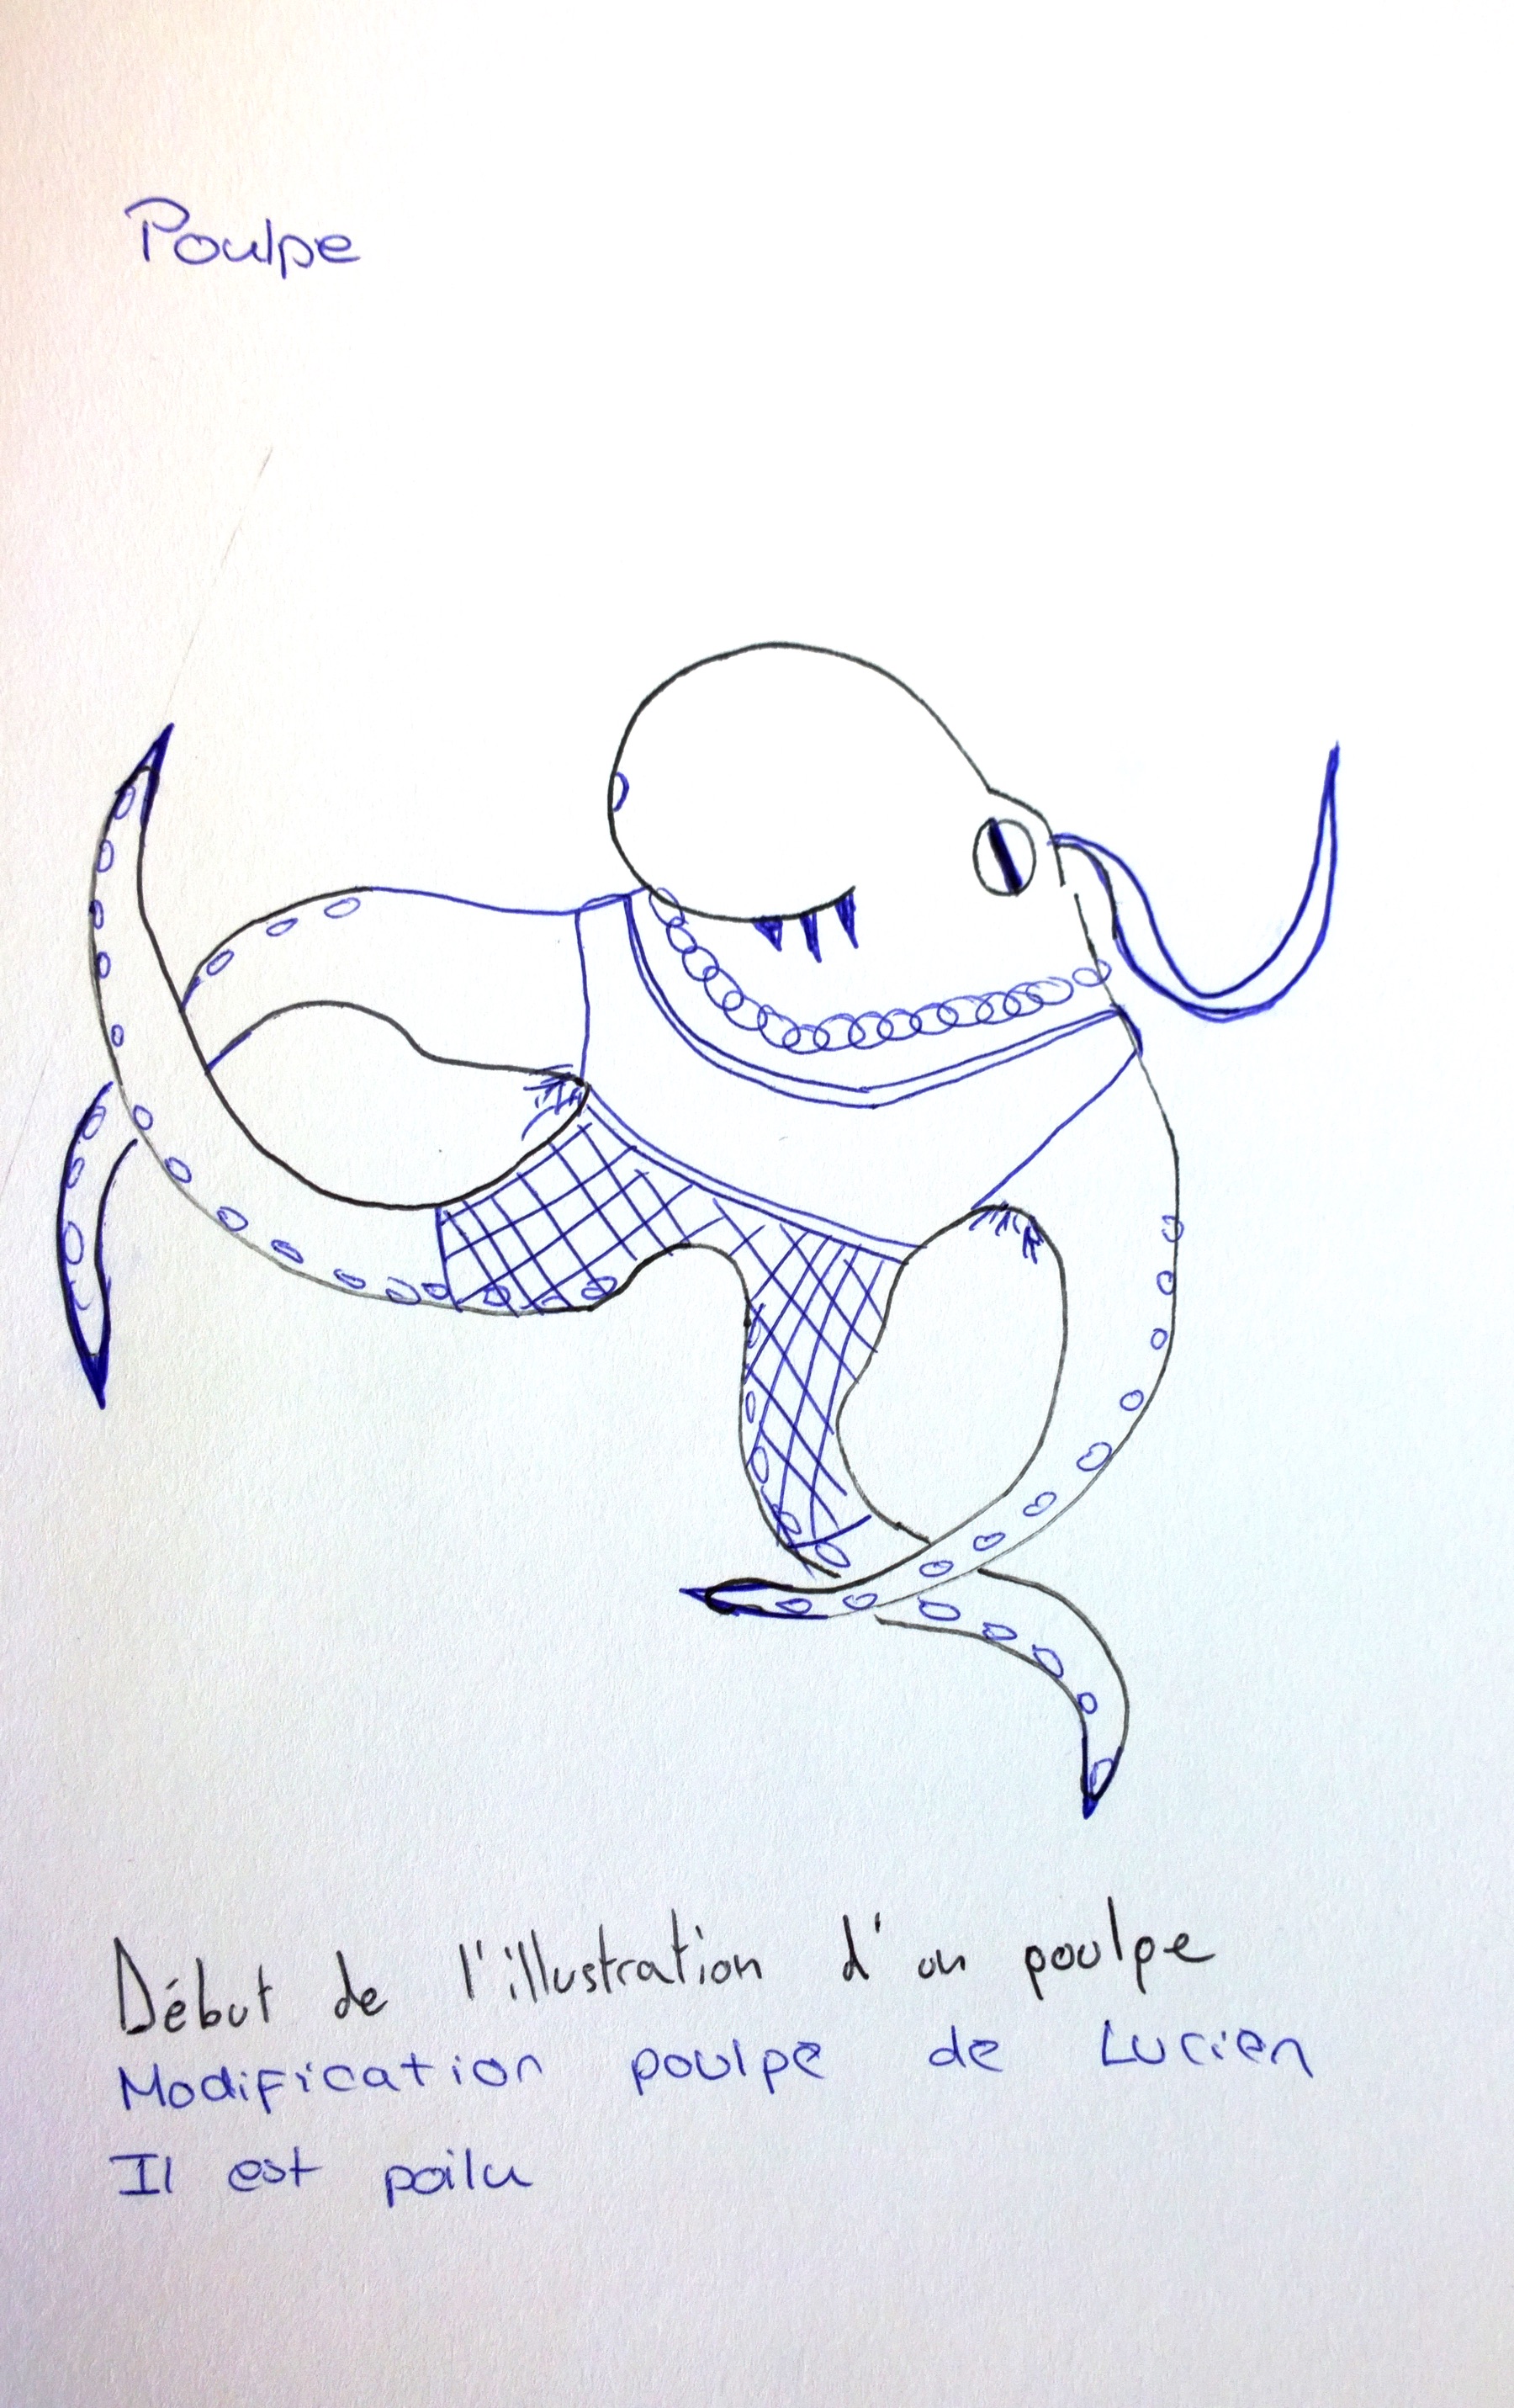 Poulpe
Début de l'illustration d'un poulpe
Modification poulpe de Lucien
Il est poilu